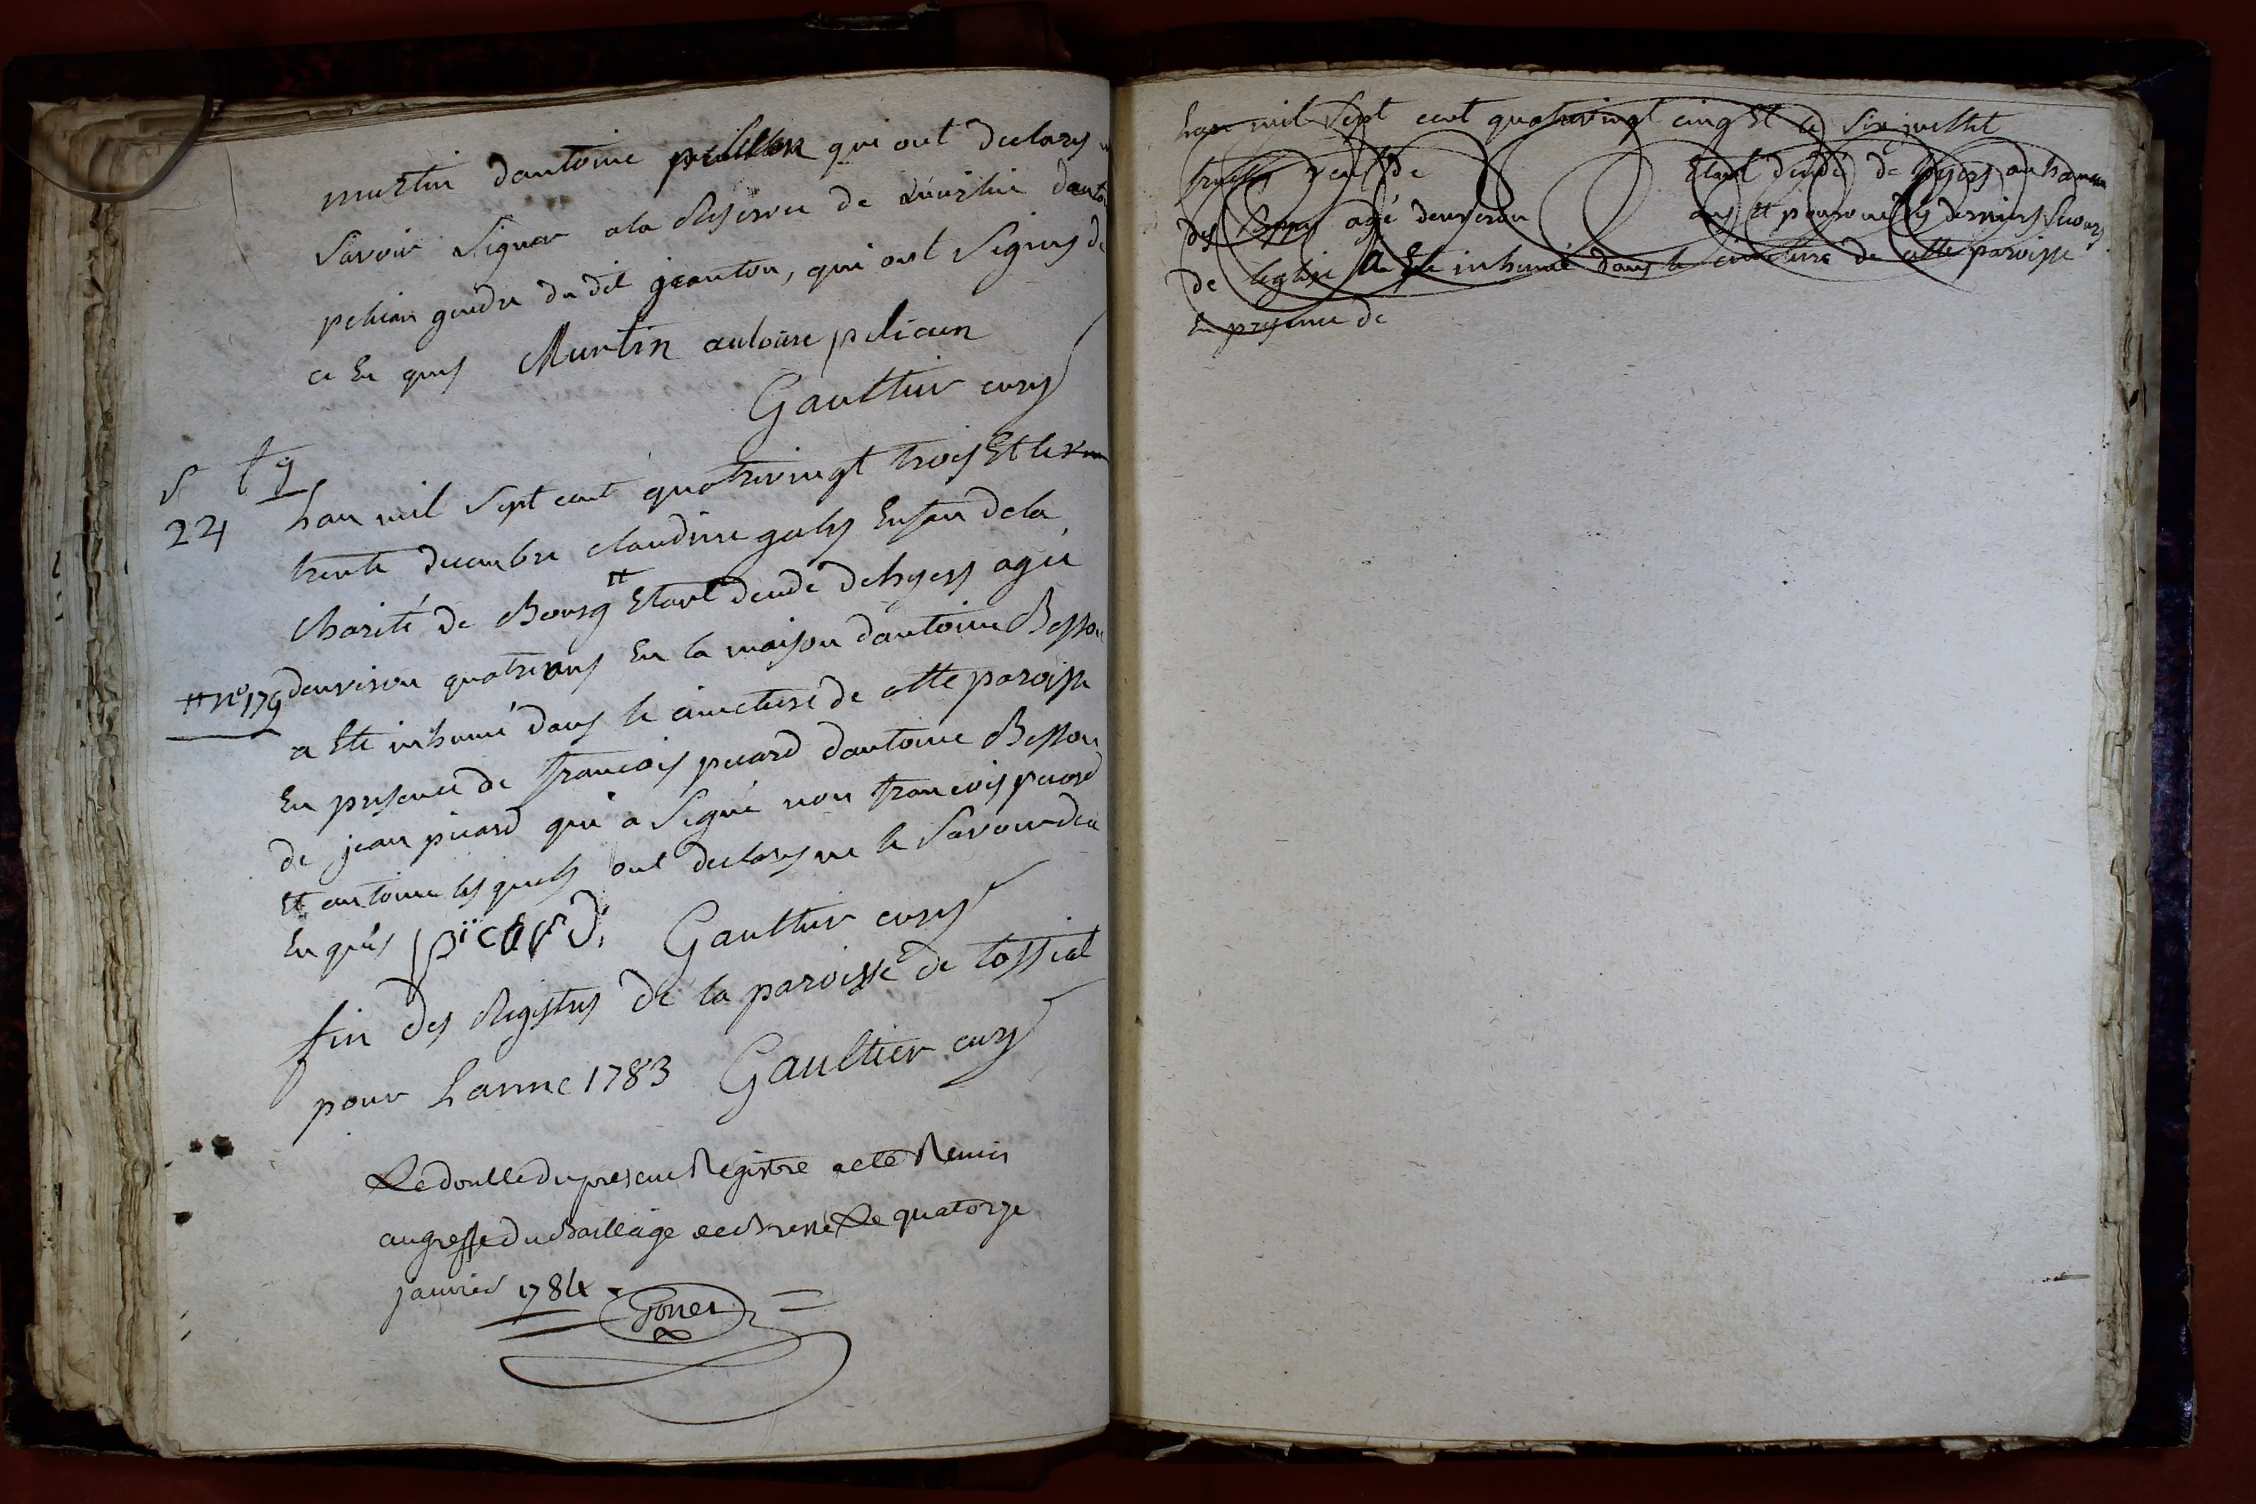 martin d'antoine pelletan qui ont declarés
savoir signer a la reserve de martin d'anto
pelican gendre du dit jeanton, qui ont signés de
ce en quis Murtin antoine pelican
Gaultier curé
S t 9
22 Lan mil sept cent quatrevingt trois Et le
trente decembre claudine galy Enfan de la
Charité de Bourg tt Etant decedé dehyers agée
tt n° 179 denviron quatre ans En la maison dantoine Besson
a Eté inhumé dans le cimetiere de cette paroisse
En presence de francois picard dantoine Besson
de jean picard qui a signé non francois picard
Et antoine les quels ont declarés ne le savoir de ce
Enquis picard. Gaultier curé
fin des Registres de la paroisse de tossiat
pour Lanne 1783 Gaultier curé
Le double du presene Registre a eté Remis
au greffe du Bailliage de Bresse Le quatorze
janvier 1784
Lan mil sept cent quatrevingt cinq Et le six juillet
veuf de Etant decedé de hyers au hameau
des agé denviron ans Et pourvu des derniers secours
de leglise a Eté inhumé dans le cimetiere de cette paroisse
En presence de